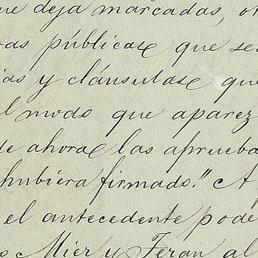 ue deja marcadas, o
as públicas que se
ias y cláusulas que
l modo que aparez
de ahora las aprueba
hubiera firmado." A
el antecedente pode
Mier y Teran al